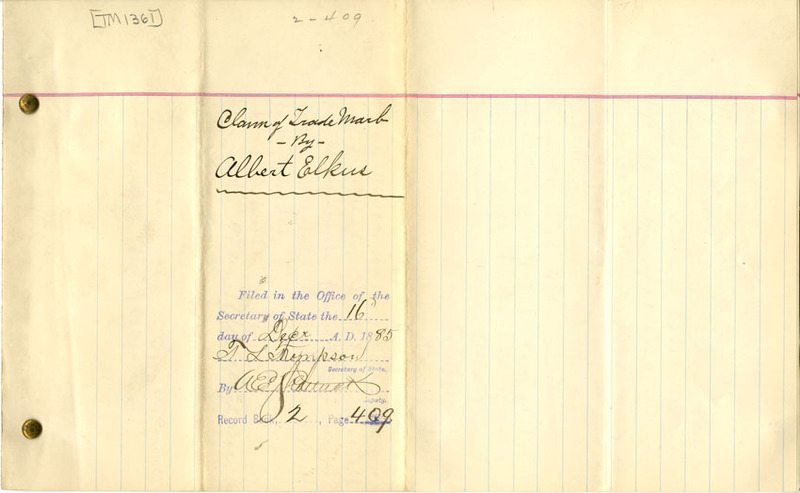 [TM1361]
2-409
Claim of Trade Mark
- By -
Albert Elkus
Filed in the Office of the
Secretary of State the 16
day of Decr A. D. 1885
T L Thompson
Secretary of State.
By
Deputy.
Record Book, 2, Page 409